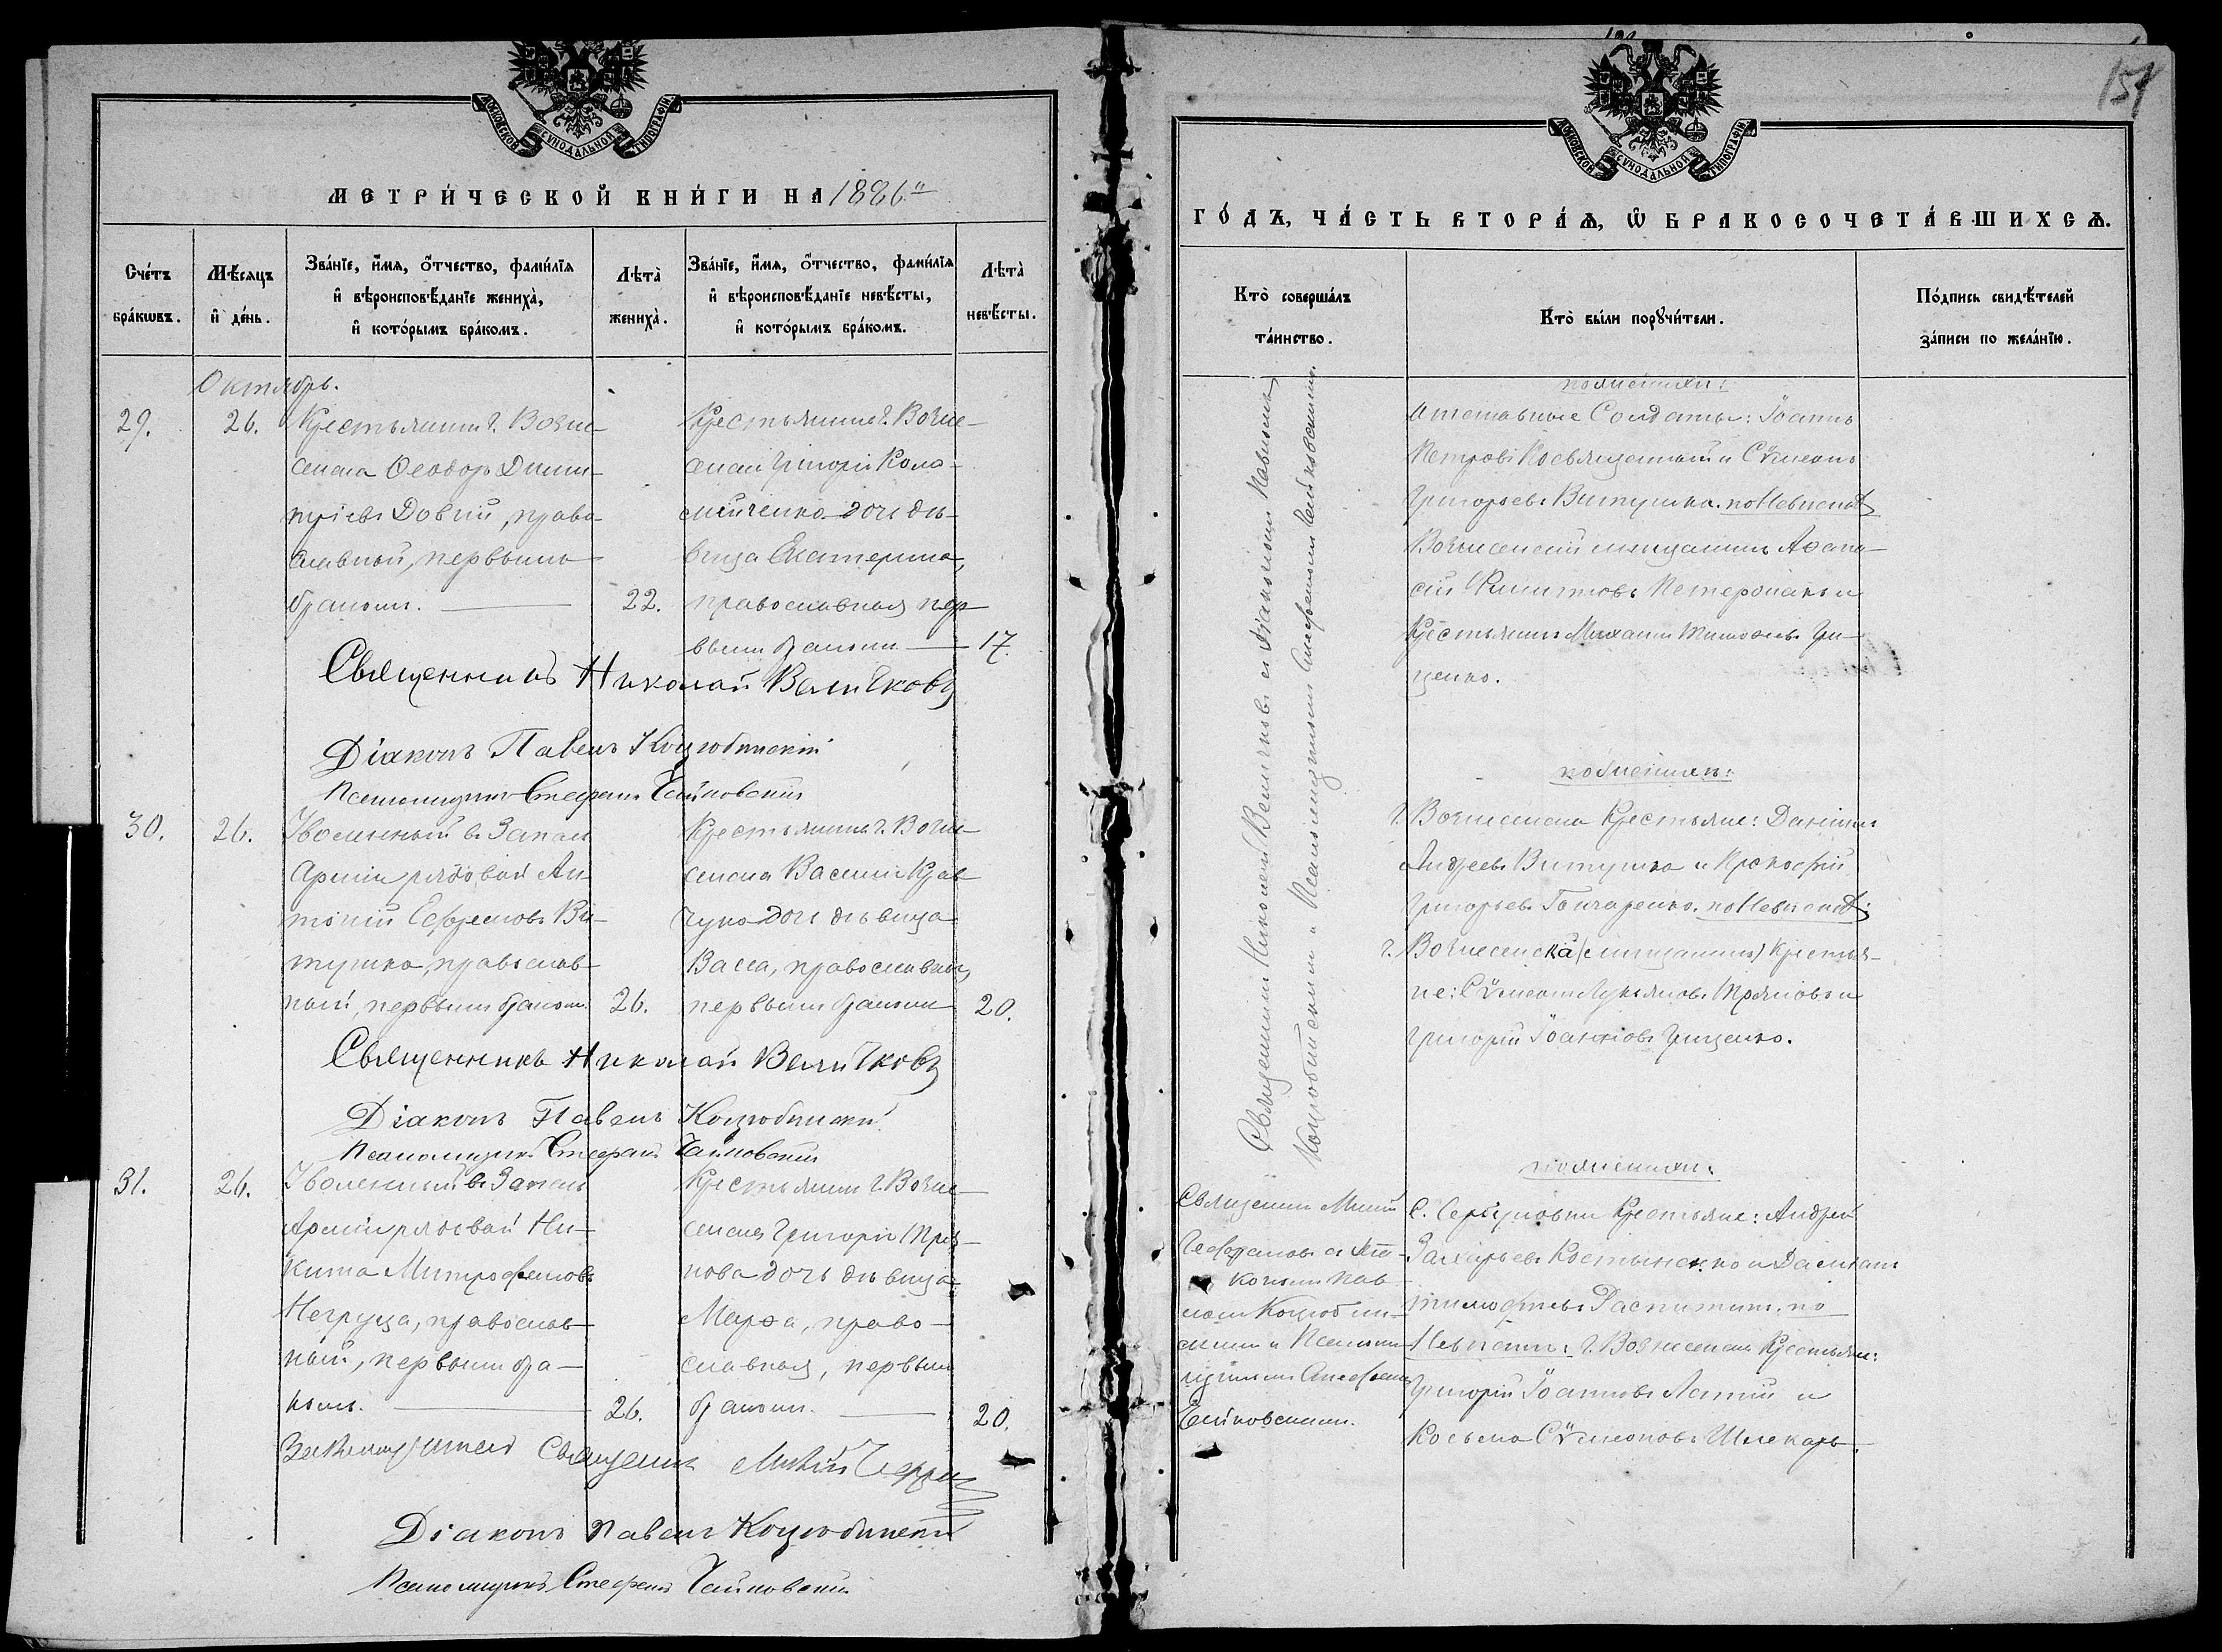 МОСКОВСКОЙ СѴНОДАЛЬНОЙ ТИПОГРАФІИ
МЕТРИ́ЧЕСКОЙ КНИ́ГИ НА 1886й
Сче́тъ бра́кѡвъ.
Мѣ́сяцъ и҆ де́нь.
Зва́нїе, и҆́мя, ѻ҆́тчество, фами́лїя
и҆ вѣроисповѣ́данїе жениха̀,
и҆ кото́рымъ бра́комъ.
Лѣта̀ жениха̀.
Зва́нїе, и҆́мя, ѻ҆́тчество, фами́лїя
и҆ вѣроисповѣ́данїе невѣ́сты,
и҆ кото́рымъ бра́комъ.
Лѣта̀ невѣ́сты.
Октябрь.
29.
26.
Крестьянинъ г. Возне-
сенска Ѳеодоръ Дими-
тріевъ Довгій, право-
славный, первымъ
бракомъ.
22.
Крестьянина г. Возне-
сенска Григорія Коло-
мійченко дочь дѣ-
вица Екатерина,
православная пер-
вымъ бракомъ
17.
Священникъ Николай Величковъ
Діаконъ Павелъ Коцюбинскій
Псаломщикъ Стефанъ Чайковскій
30.
26.
Уволенный въ Запасъ
Арміи рядовой Ан-
тоній Ефремовъ Ви-
тушко, православ-
ный, первымъ бракомъ.
26.
Крестьянина г. Возне-
сенска Василія Крав-
чука дочь дѣвица
Васса, православная
первымъ бракомъ
20.
Священникъ Николай Величковъ
Діаконъ Павелъ Коцюбинскій
Псаломщикъ Стефанъ Чайковскій
31.
26.
Уволенный въ Запасъ
Арміи рядовой Ни-
кита Митрофановъ
Негруца, православ-
ный, первымъ бра-
комъ.
26.
Крестьянина г. Возне-
сенска Григорія Тря-
нова дочь дѣвица
Марѳа, право-
славная, первымъ
бракомъ.
20.
Священникъ
Діаконъ Павелъ Коцюбинскій
Псаломщикъ Стефанъ Чайковскій
151
МОСКОВСКОЙ СѴНОДАЛЬНОЙ ТИПОГРАФІИ
ГО́ДЪ, ЧА́СТЬ ВТОРА́Ѧ, Ѡ҆ БРАКОСОЧЕТА́ВШИХСѦ.
Кто̀ соверша́лъ
та́инство.
Кто̀ бы́ли порꙋчи́тели.
По́дпись свидѣ́телей
за́писи по жела́нїю.
Священникъ Николай Величковъ съ Діакономъ Павломъ
Коцюбинскимъ и Псаломщикомъ Стефаномъ Чайковскимъ.
по женихѣ:
Отставные Солдаты: Іоаннъ
Петровъ Посвященный и Сѵмеонъ
Григорьевъ Витушко. по Невѣстѣ
Вознесенскій мещанинъ Аѳана-
сій и
Крестьянинъ Михаилъ Тимоѳеевъ Гри-
ценко.
по женихѣ:
г. Вознесенска Крестьяне: Даніилъ
Андреевъ Витушко и Прокофій
Григорьевъ Гончаренко. по Невѣстѣ:
г. Вознесенска (мещанинъ) Крестья-
не: Сѵмеонъ Лукьяновъ Тряновъ и
Григорій Іоанновъ Гриценко.
по женихѣ:
Священникъ
съ Діа-
кономъ Пав-
ломъ Коцюбин-
скимъ и Псалом-
щикомъ Стефаномъ
Чайковскимъ.
С. Крестьяне: Андрей
Захарьевъ и
Тимофѣевъ по
Невѣстѣ: г. Вознесенска Крестьяне:
Григорій Іоанновъ и
Косьма Сѵмеоновъ Шлекарь.